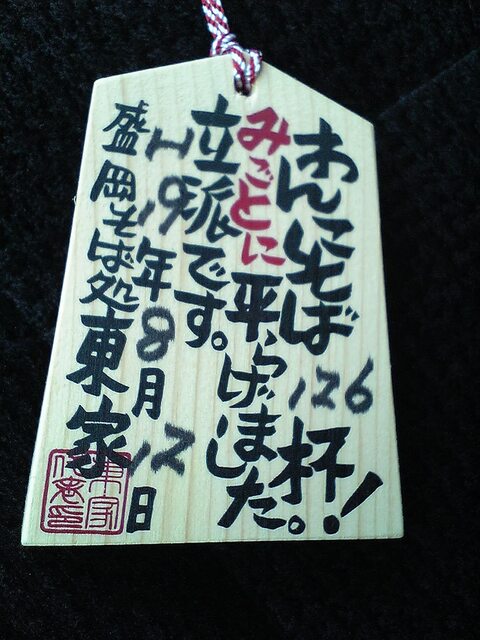 わんこそば126杯!
みごとに平らげました。
立派です。
H19年8月12日
盛岡そば処東家